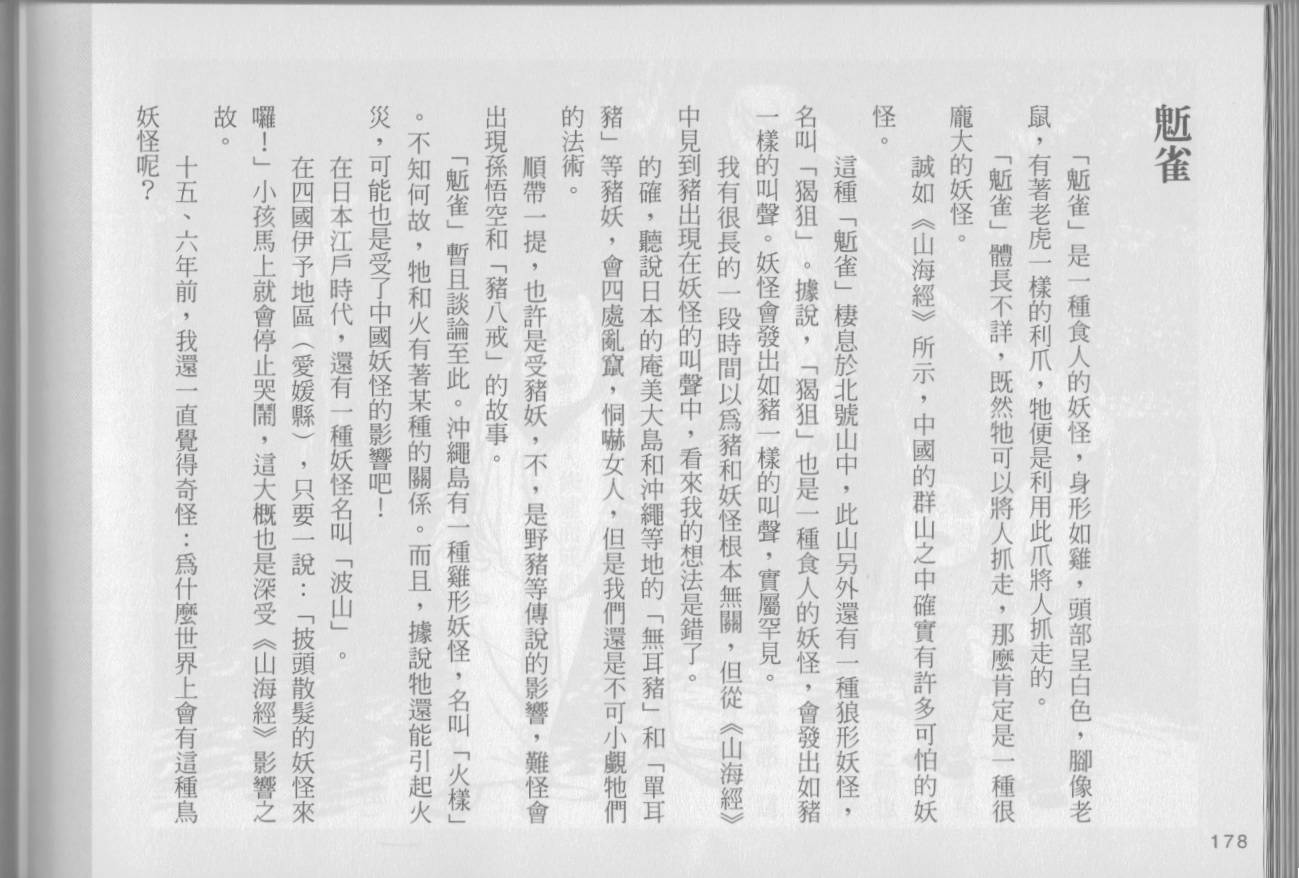 鬿雀
「鬿雀」是一種食人的妖怪，身形如雞，頭部呈白色，腳像老
鼠，有著老虎一樣的利爪，牠便是利用此爪將人抓走的。
「鬿雀」體長不詳，既然牠可以將人抓走，那麼肯定是一種很
龐大的妖怪。
誠如《山海經》所示，中國的群山之中確實有許多可怕的妖
怪。
這種「鬿雀」棲息於北號山中，此山另外還有一種狼形妖怪，
名叫「猲狙」。據說，「猲狙」也是一種食人的妖怪，會發出如豬
一樣的叫聲。妖怪會發出如豬一樣的叫聲，實屬罕見。
我有很長的一段時間以爲豬和妖怪根本無關，但從《山海經》
中見到豬出現在妖怪的叫聲中，看來我的想法是錯了。
的確，聽說日本的庵美大島和沖繩等地的「無耳豬」和「單耳
豬」等豬妖，會四處亂竄，恫嚇女人，但是我們還是不可小覷牠們
的法術。
順帶一提，也許是受豬妖，不，是野豬等傳說的影響，難怪會
出現孫悟空和「豬八戒」的故事。
「鬿雀」暫且談論至此。沖繩島有一種雞形妖怪，名叫「火樣」
。不知何故，牠和火有著某種的關係。而且，據說牠還能引起火
災，可能也是受了中國妖怪的影響吧！
在日本江戶時代，還有一種妖怪名叫「波山」。
在四國伊予地區（愛媛縣），只要一說：「披頭散髮的妖怪來
囉！」小孩馬上就會停止哭鬧，這大概也是深受《山海經》影響之
故。
十五、六年前，我還一直覺得奇怪：爲什麼世界上會有這種鳥
妖怪呢？
178